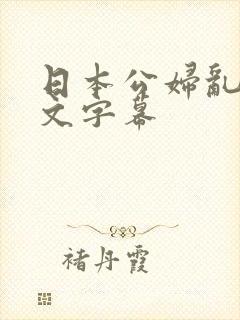 日本公婦亂
文字幕
褚丹霞